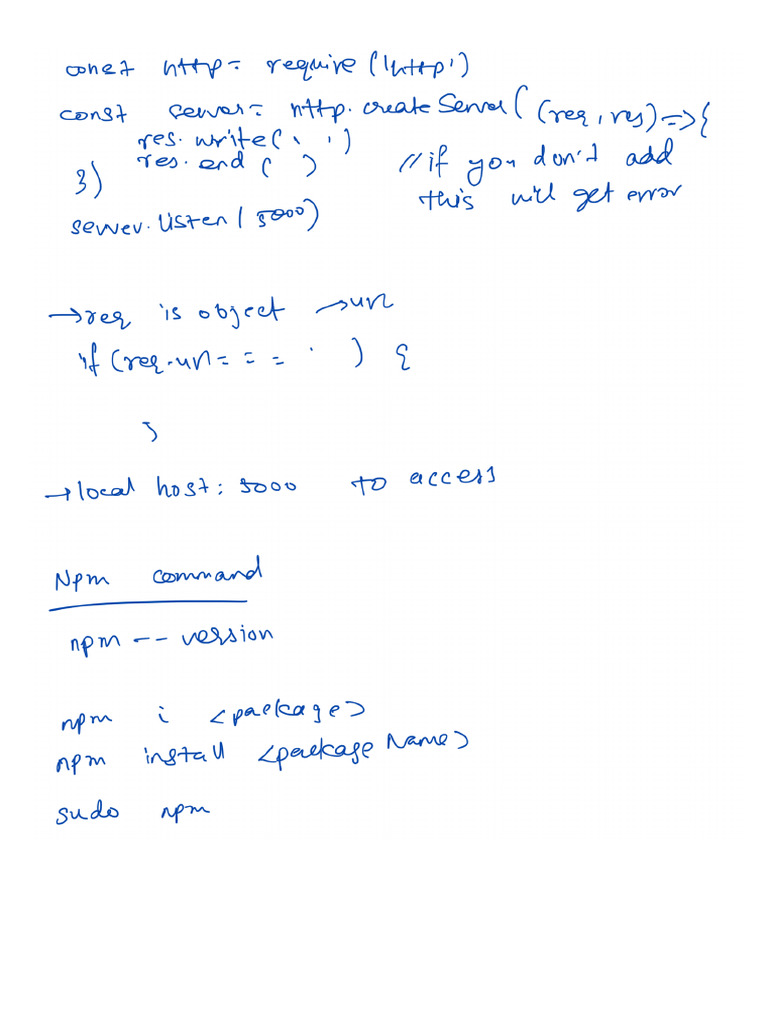 const http = require('http')
const server = http.createServer((req, res) => {
res.write(' ')
res.end ( ) // if you don't add
}) this will get error
server.listen(5000)
→ req is object → url
if (req.url === ' ) {
}
→ local host: 5000 to access
Npm command
npm -- version
npm i <package>
npm install <package Name>
sudo npm